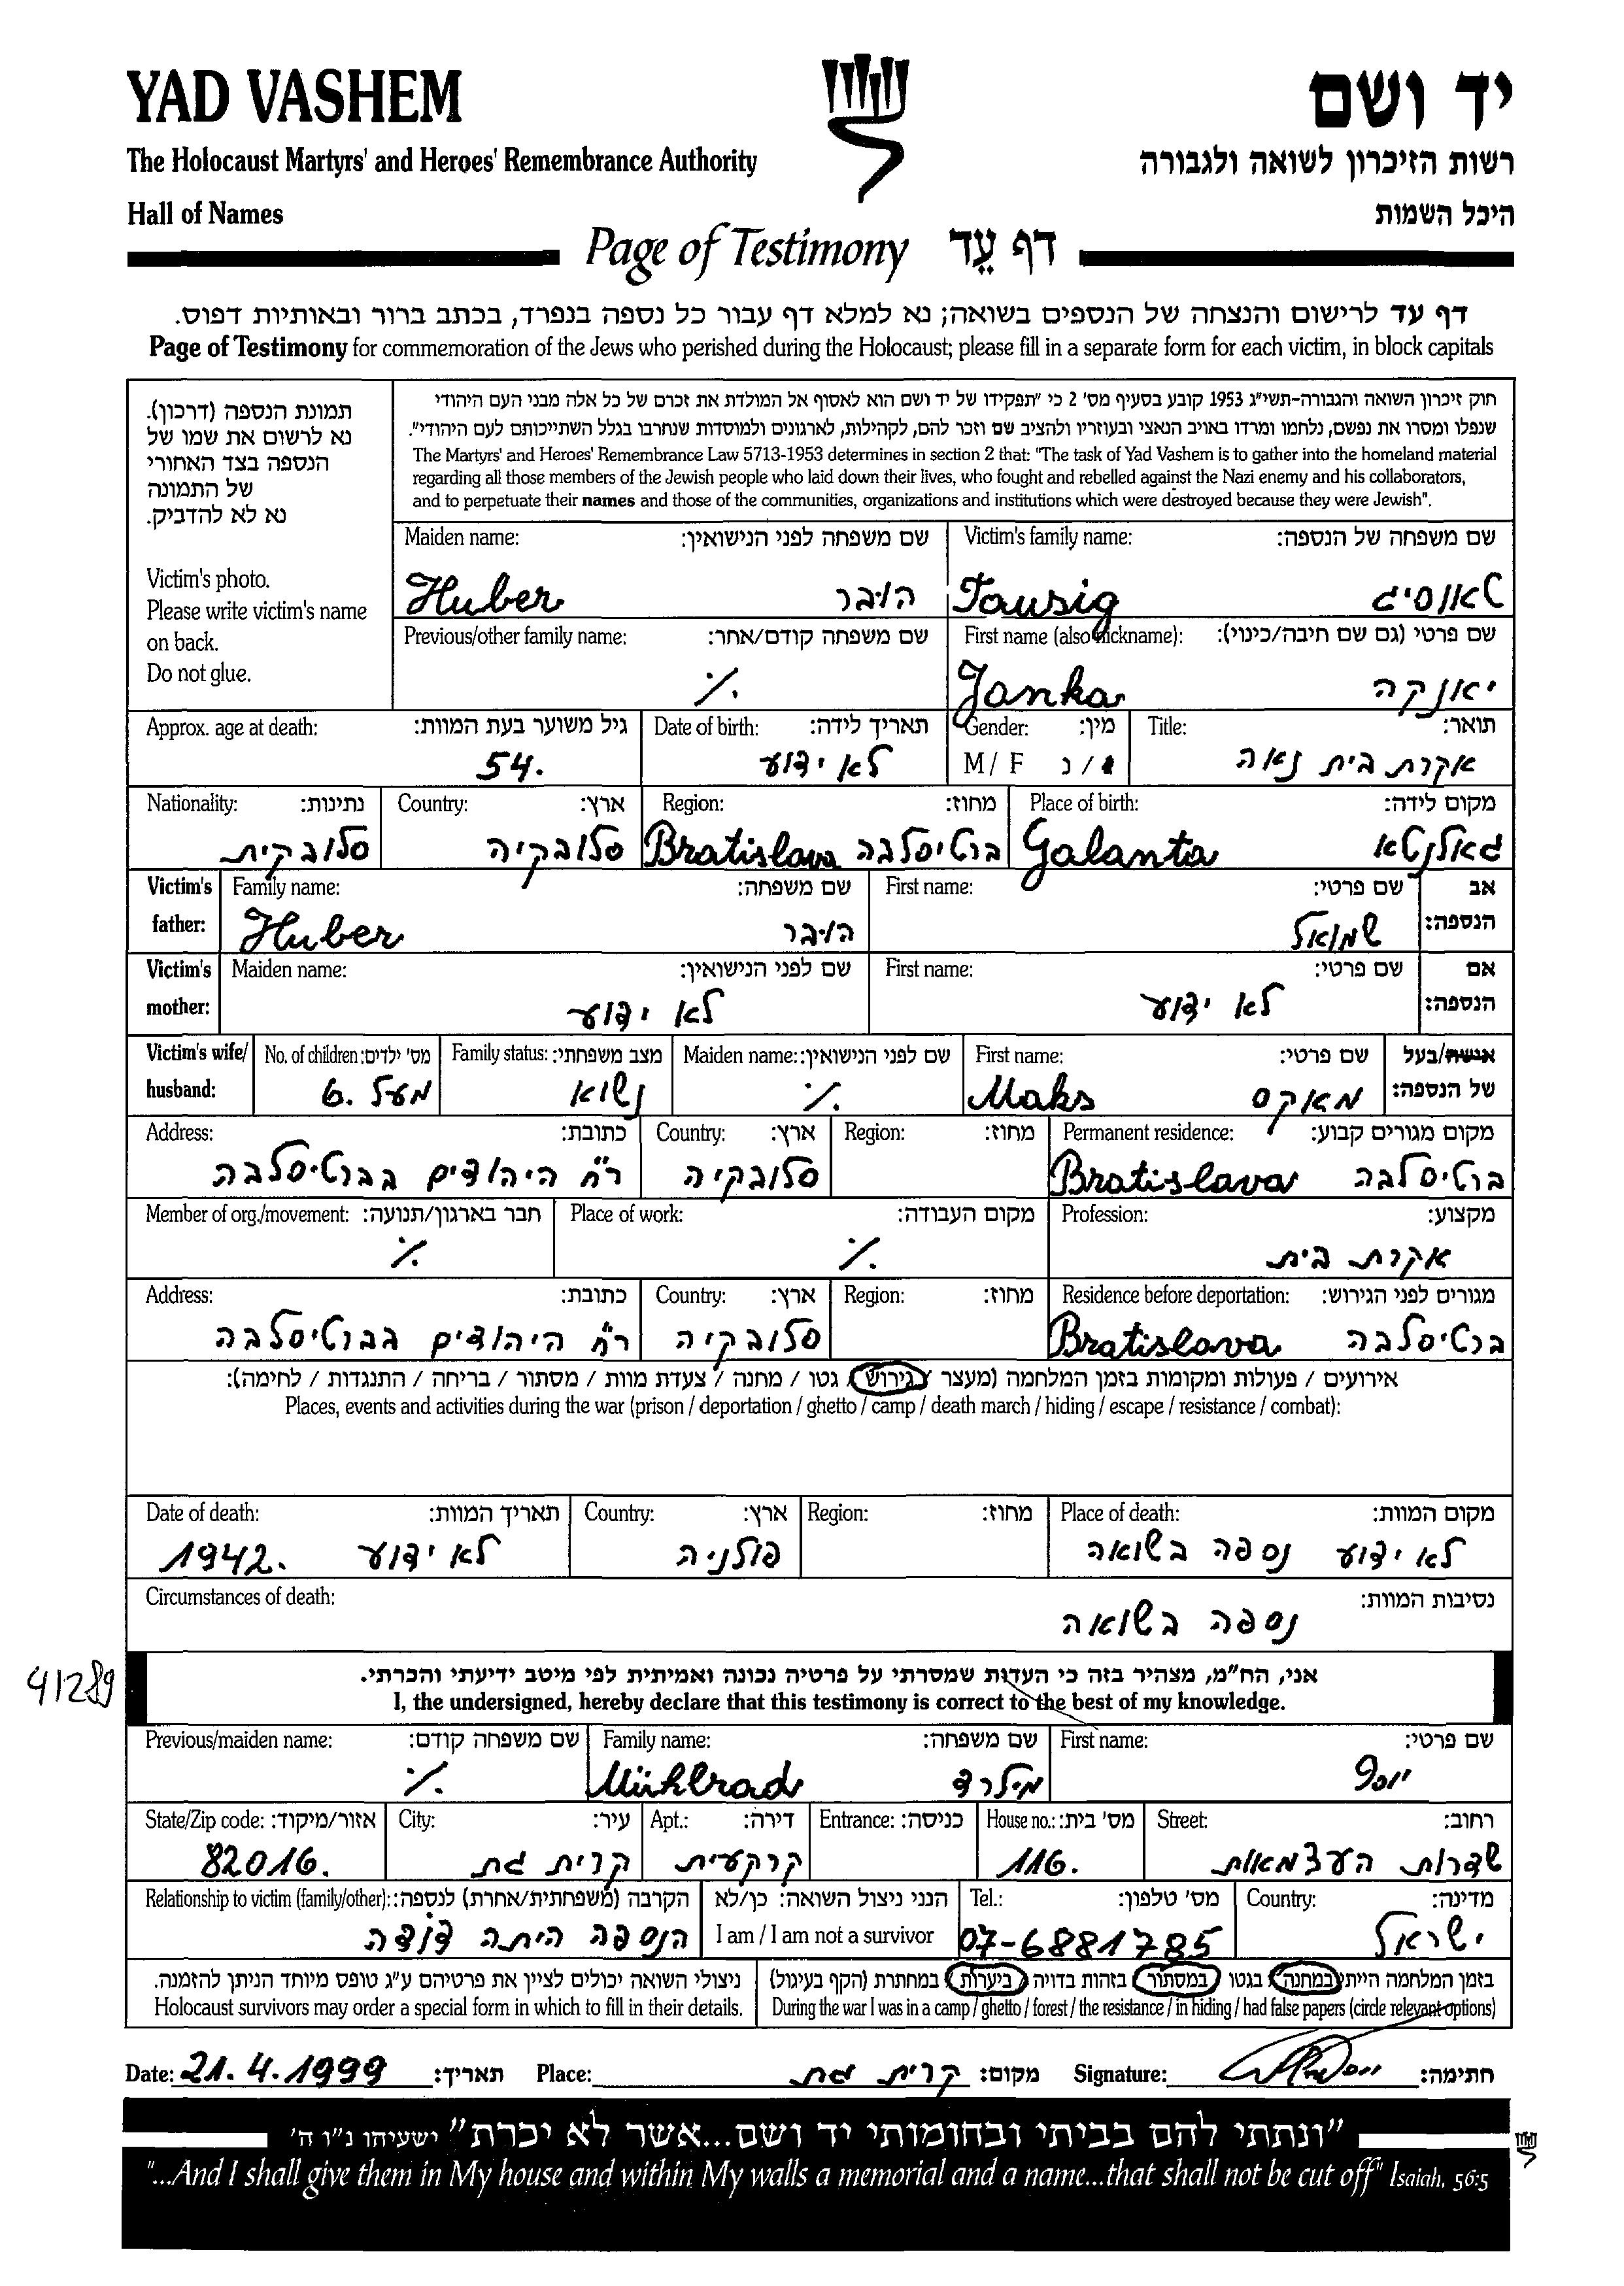 YAD VASHEM
יד ושם
The Holocaust Martyrs' and Heroes' Remembrance Authority
רשות הזיכרון לשואה ולגבורה
Hall of Names
היכל השמות
Page of Testimony דף עֵד
דף עד לרישום והנצחה של הנספים בשואה; נא למלא דף עבור כל נספה בנפרד, בכתב ברור ובאותיות דפוס.
Page of Testimony for commemoration of the Jews who perished during the Holocaust; please fill in a separate form for each victim, in block capitals
תמונת הנספה (דרכון).
נא לרשום את שמו של
הנספה בצד האחורי
של התמונה
נא לא להדביק.
Victim's photo.
Please write victim's name
on back.
Do not glue.
חוק זיכרון השואה והגבורה-תשי"ג 1953 קובע בסעיף מס' 2 כי "תפקידו של יד ושם הוא לאסוף אל המולדת את זכרם של כל אלה מבני העם היהודי
שנפלו ומסרו את נפשם, נלחמו ומרדו באויב הנאצי ובעוזריו ולהציב שם וזכר להם, לקהילות, לארגונים ולמוסדות שנחרבו בגלל השתייכותם לעם היהודי".
The Martyrs' and Heroes' Remembrance Law 5713-1953 determines in section 2 that: "The task of Yad Vashem is to gather into the homeland material
regarding all those members of the Jewish people who laid down their lives, who fought and rebelled against the Nazi enemy and his collaborators,
and to perpetuate their names and those of the communities, organizations and institutions which were destroyed because they were Jewish".
Victim's family name: שם משפחה של הנספה:
Tausig טאוסיג
Maiden name: שם משפחה לפני הנישואין:
Huber הובר
First name (also nickname): שם פרטי (גם שם חיבה/כינוי):
Janka יאנקה
Previous/other family name: שם משפחה קודם/אחר:
٪
Title: תואר:
עקרת בית נאה
Gender: מין:
M / F ז / נ
Date of birth: תאריך לידה:
לא ידוע
Approx. age at death: גיל משוער בעת המוות:
54.
Place of birth: מקום לידה:
Galanta גאלנטא
Region: מחוז:
Bratislava ברטיסלבה
Country: ארץ:
סלובקיה
Nationality: נתינות:
סלובקית
Victim's father: אב הנספה:
First name: שם פרטי:
שמואל
Family name: שם משפחה:
Huber הובר
Victim's mother: אם הנספה:
First name: שם פרטי:
לא ידוע
Maiden name: שם לפני הנישואין:
לא ידוע
Victim's wife/ husband: אישה/בעל של הנספה:
First name: שם פרטי:
Maks מאקס
Maiden name: שם לפני הנישואין:
٪
Family status: מצב משפחתי:
נשוא
No. of children: מס' ילדים:
מעל 6.
Permanent residence: מקום מגורים קבוע:
Bratislava ברטיסלבה
Region: מחוז:
Country: ארץ:
סלובקיה
Address: כתובת:
רח היהודים בברטיסלבה
Profession: מקצוע:
עקרת בית
Place of work: מקום העבודה:
٪
Member of org./movement: חבר בארגון/תנועה:
٪
Residence before deportation: מגורים לפני הגירוש:
Bratislava ברטיסלבה
Region: מחוז:
Country: ארץ:
סלובקיה
Address: כתובת:
רח היהודים בברטיסלבה
אירועים / פעולות ומקומות בזמן המלחמה (מעצר / גירוש / גטו / מחנה / צעדת מוות / מסתור / בריחה / התנגדות / לחימה):
Places, events and activities during the war (prison / deportation / ghetto / camp / death march / hiding / escape / resistance / combat):
Place of death: מקום המוות:
לא ידוע נספה בשואה
Region: מחוז:
Country: ארץ:
פולניה
Date of death: תאריך המוות:
לא ידוע 1942.
Circumstances of death: נסיבות המוות:
נספה בשואה
41289
אני, הח"מ, מצהיר בזה כי העדות שמסרתי על פרטיה נכונה ואמיתית לפי מיטב ידיעתי והכרתי.
I, the undersigned, hereby declare that this testimony is correct to the best of my knowledge.
First name: שם פרטי:
יוסף
Family name: שם משפחה:
Mühlrad מילרד
Previous/maiden name: שם משפחה קודם:
٪
Street: רחוב:
שדרות העצמאות
House no.: מס' בית:
116.
Entrance: כניסה:
Apt.: דירה:
קרקעית
City: עיר:
קרית גת
State/Zip code: אזור/מיקוד:
82016.
Country: מדינה:
ישראל
Tel.: מס' טלפון:
07-6881785
הנני ניצול השואה: כן/לא
I am / I am not a survivor
Relationship to victim (family/other): הקרבה (משפחתית/אחרת) לנספה:
הנספה היתה דודה
בזמן המלחמה הייתי במחנה / בגטו / במסתור / בזהות בדויה / ביערות / במחתרת (הקף בעיגול)
During the war I was in a camp / ghetto / forest / the resistance / in hiding / had false papers (circle relevant options)
ניצולי השואה יכולים לציין את פרטיהם ע"ג טופס מיוחד הניתן להזמנה.
Holocaust survivors may order a special form in which to fill in their details.
Date: 21.4.1999 תאריך: Place: קרית גת מקום: Signature: חתימה:
"ונתתי להם בביתי ובחומותי יד ושם...אשר לא יכרת" ישעיהו נ"ו ה'
"...And I shall give them in My house and within My walls a memorial and a name...that shall not be cut off" Isaiah, 56:5